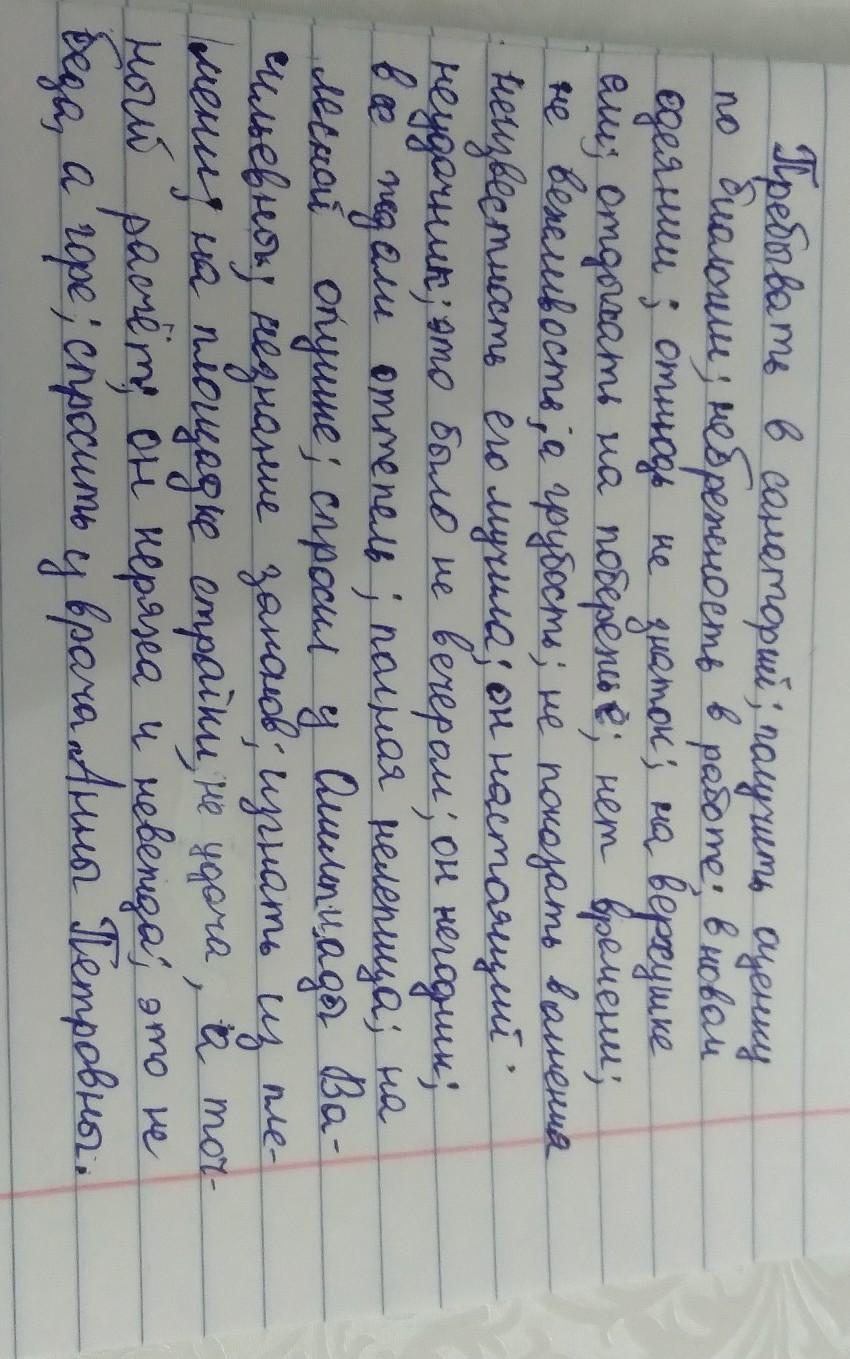 Пребывать в санаторий; получить оценку
по биологии; небрежность в работе; в новом
одеянии; отнюдь не знаток; на верхушке
ели; отдыхать на побережье; нет времени;
не вежливость, а грубость; не показать волнения
неизвестность его мучила; он настоящий
неудачник; это было не вечером; он негодник;
все ждали оттепель; полная нелепица; на
лесной опушке; спросил у Олимпиады Ва-
сильевны; незнание законов; изгнать из пле-
мени; на площадке стройки; не удача, а точ-
ный расчёт; он неряха и невежда; это не
беда, а горе; спросить у врача Анны Петровны.